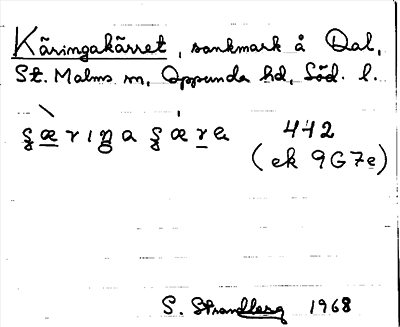 Käringakärret, sankmark å Dal,
St. Malms sn, Oppunda hd, Söd. l.
442
(ek 9G7e)
S. Strandberg 1968